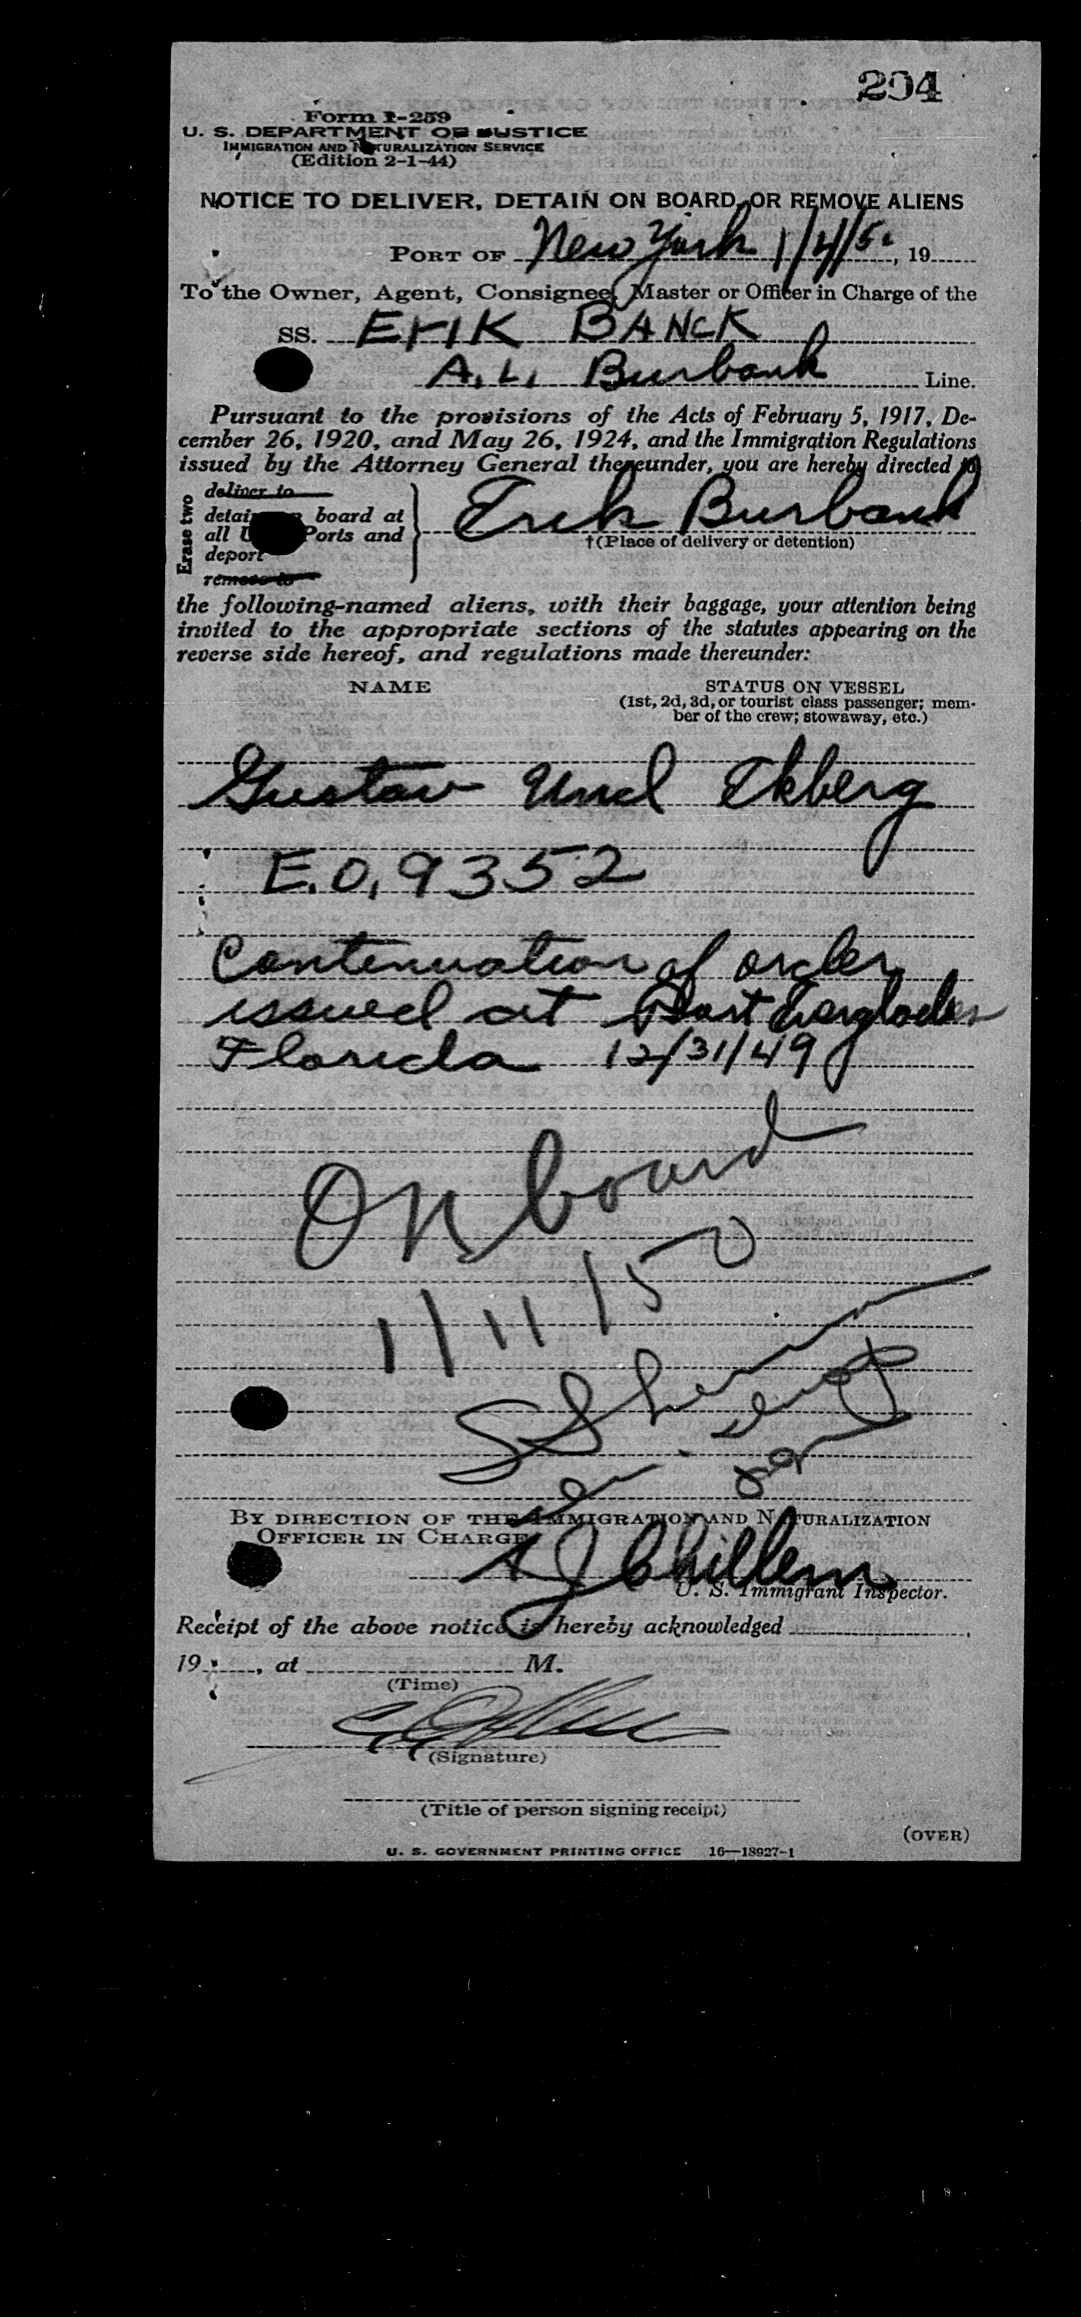 204
Form I-259
U. S. DEPARTMENT OF JUSTICE
IMMIGRATION AND NATURALIZATION SERVICE
(Edition 2-1-44)
NOTICE TO DELIVER, DETAIN ON BOARD, OR REMOVE ALIENS
PORT OF New York 1/4/50, 19
To the Owner, Agent, Consignee, Master or Officer in Charge of the
SS. ErIK BANCK
A. L. Burbank Line.
Pursuant to the provisions of the Acts of February 5, 1917, De-
cember 26, 1920, and May 26, 1924, and the Immigration Regulations
issued by the Attorney General thereunder, you are hereby directed to
Erase two
deliver to
detain on board at
all U Ports and
deport
remove to
Erik Burbank
†(Place of delivery or detention)
the following-named aliens, with their baggage, your attention being
invited to the appropriate sections of the statutes appearing on the
reverse side hereof, and regulations made thereunder:
NAME STATUS ON VESSEL
(1st, 2d, 3d, or tourist class passenger; mem-
ber of the crew; stowaway, etc.)
Gustav Ekberg
E.O. 9352
Contenuation of order
issued at Port Everglades
Florida 12/31/49
On board
1/11/50
BY DIRECTION OF THE IMMIGRATION AND NATURALIZATION
OFFICER IN CHARGE
U. S. Immigrant Inspector.
Receipt of the above notice is hereby acknowledged ,
19 , at M.
(Time)
(Signature)
(Title of person signing receipt)
(OVER)
U. S. GOVERNMENT PRINTING OFFICE 16—18927-1